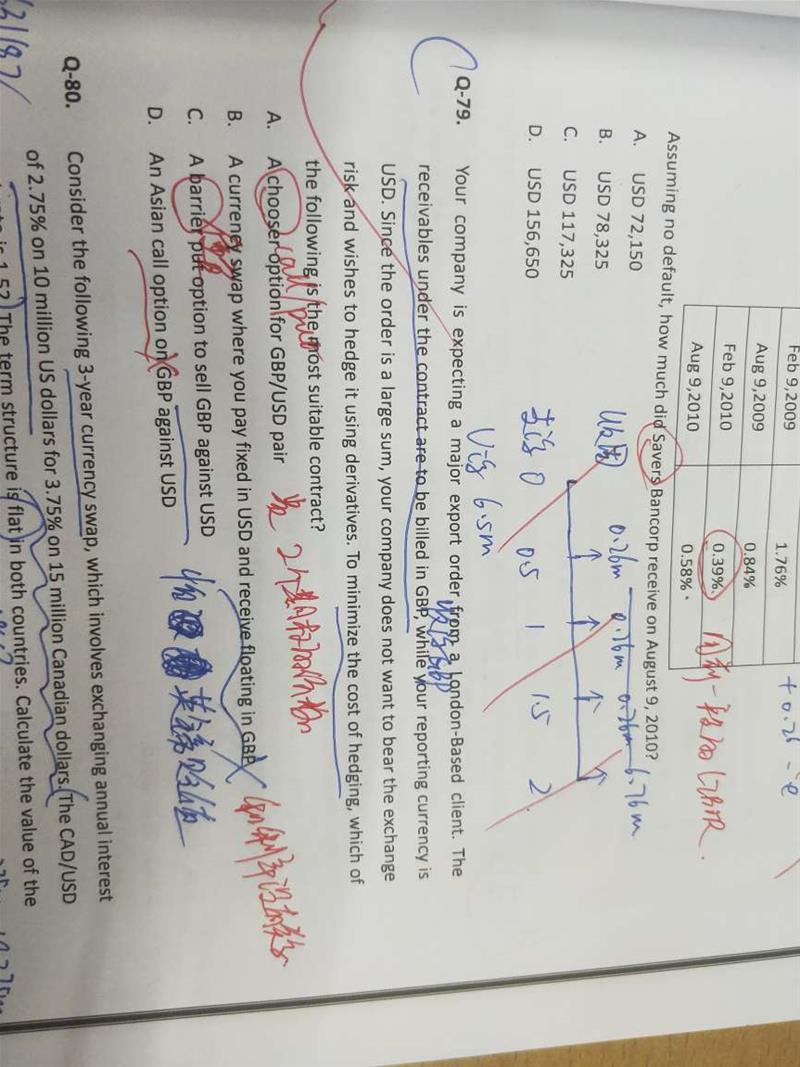 Feb 9,2009 1.76%
Aug 9,2009 0.84%
Feb 9,2010 0.39%
Aug 9,2010 0.58%
Assuming no default, how much did Savers Bancorp receive on August 9, 2010?
A. USD 72,150
B. USD 78,325
C. USD 117,325
D. USD 156,650
收固 0.26m 0.26m 0.26m 6.76m
支浮 0 0.5 1 1.5 2
V浮 6.5m
Q-79. Your company is expecting a major export order from a London-Based client. The
receivables under the contract are to be billed in GBP, while your reporting currency is
USD. Since the order is a large sum, your company does not want to bear the exchange
risk and wishes to hedge it using derivatives. To minimize the cost of hedging, which of
the following is the most suitable contract?
A. A chooser option for GBP/USD pair
call/put
B. A currency swap where you pay fixed in USD and receive floating in GBP
C. A barrier put option to sell GBP against USD
D. An Asian call option on GBP against USD
Q-80. Consider the following 3-year currency swap, which involves exchanging annual interest
of 2.75% on 10 million US dollars for 3.75% on 15 million Canadian dollars. The CAD/USD
is 1.52. The term structure is flat in both countries. Calculate the value of the